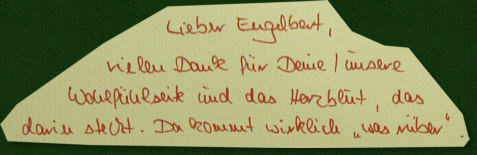 Lieber Engelbert,
vielen Dank für Deine / unsere
Wohlfühlseite und das Herzblut, das
darin steckt. Da kommt wirklich „was rüber“.